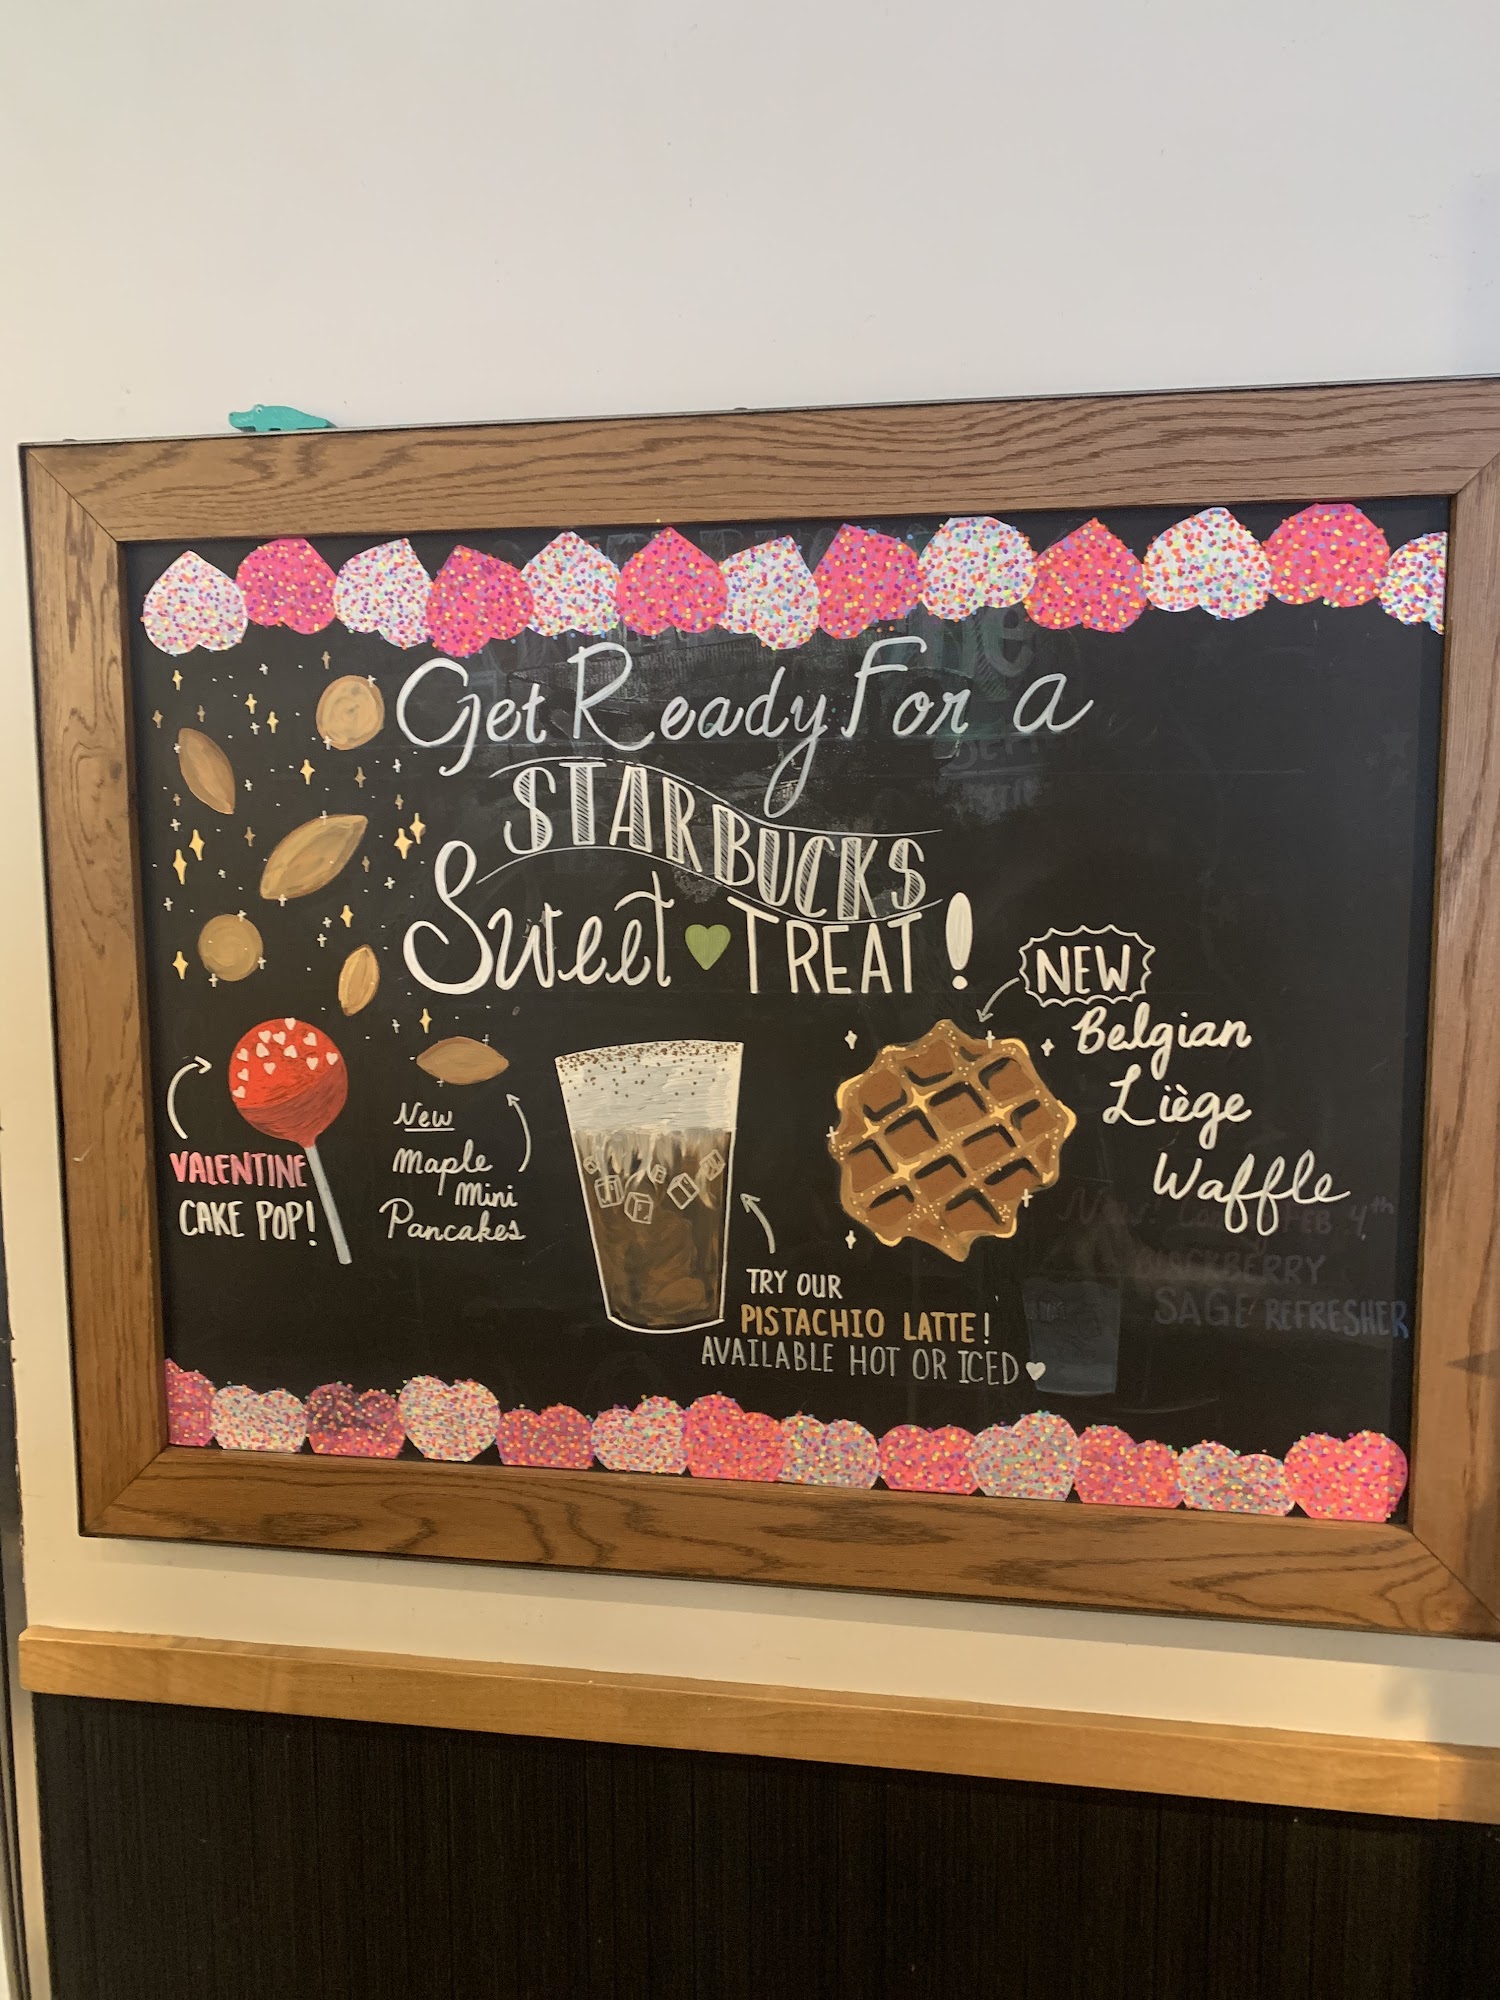 Get Ready For a
STARBUCKS
Sweet TREAT!
NEW
Belgian
Liège
Waffle
VALENTINE
CAKE POP!
New
Maple
Mini
Pancakes
TRY OUR
PISTACHIO LATTE!
AVAILABLE HOT OR ICED
FEB 4th
BLACKBERRY
SAGE REFRESHER